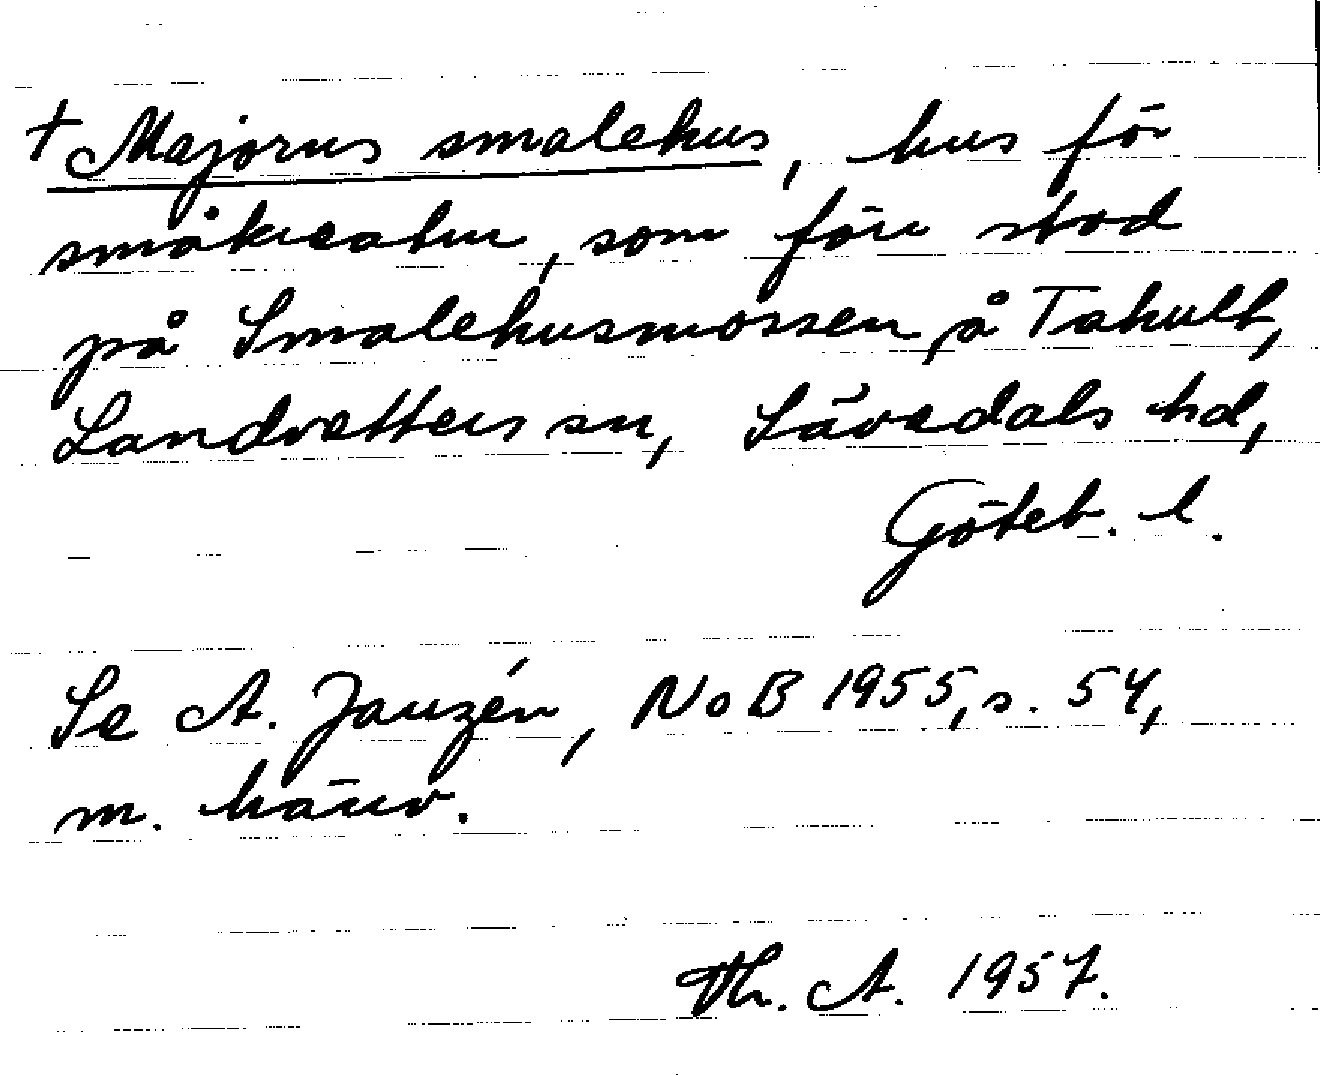 † Majorns smalehus, hus för
småkreatur, som förr stod
på Smalehusmossen å Tahult,
Landvetters sn, Sävedals hd,
Göteb. l.
Se A. Janzén, NoB 1955, s. 54,
m. hänv.
Th. A. 1957.